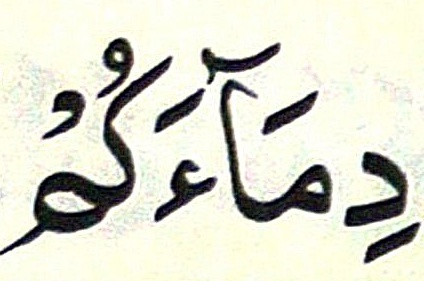 دِمَآءَكُمْ